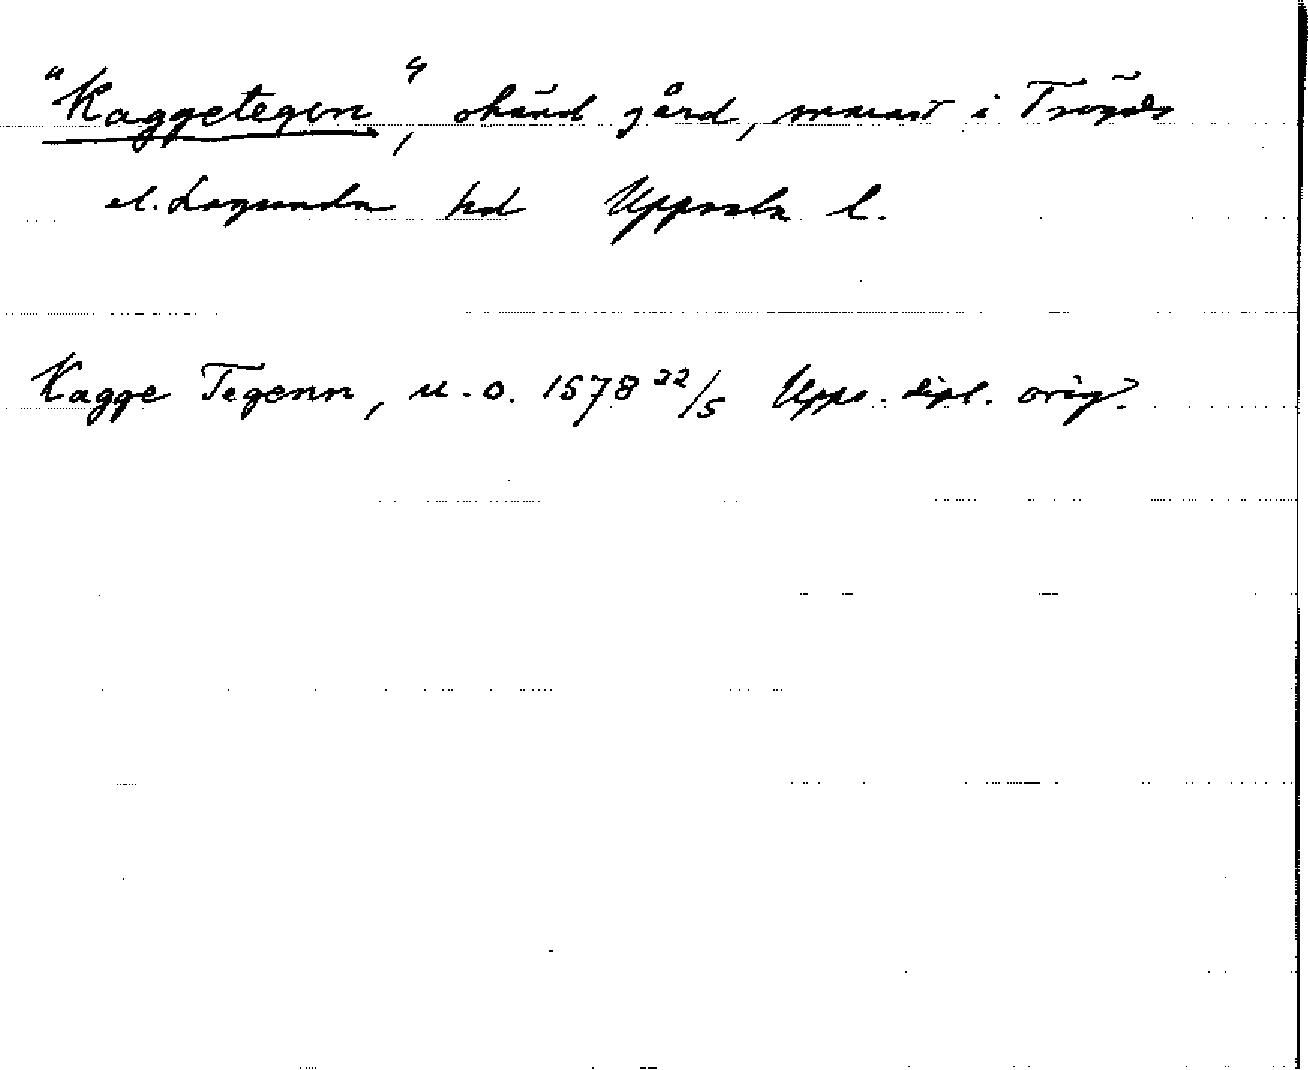 "Kaggetegen", okänd gård, snarast i Trögds
el. Lagunda hd Uppsala l.
Kagge Tegenn, u. o. 1578 22/5 Upps. dipl. orig.